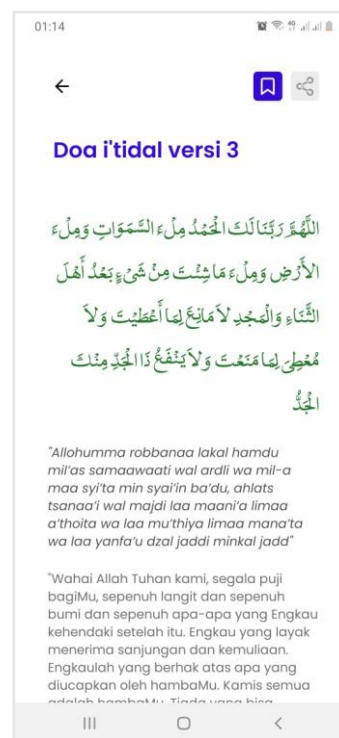 01:14
Doa i'tidal versi 3
اللَّهُمَّ رَبَّنَا لَكَ الْحَمْدُ مِلْءَ السَّمَوَاتِ وَمِلْءَ
الأَرْضِ وَمِلْءَ مَا شِئْتَ مِنْ شَىْءٍ بَعْدُ أَهْلَ
الثَّنَاءِ وَالْمَجْدِ لاَ مَانِعَ لِمَا أَعْطَيْتَ وَلاَ
مُعْطِىَ لِمَا مَنَعْتَ وَلاَ يَنْفَعُ ذَا الْجَدِّ مِنْكَ
الْجَدُّ
"Allohumma robbanaa lakal hamdu
mil'as samaawaati wal ardli wa mil-a
maa syi'ta min syai'in ba'du, ahlats
tsanaa'i wal majdi laa maani'a limaa
a'thoita wa laa mu'thiya limaa mana'ta
wa laa yanfa'u dzal jaddi minkal jadd"
"Wahai Allah Tuhan kami, segala puji
bagiMu, sepenuh langit dan sepenuh
bumi dan sepenuh apa-apa yang Engkau
kehendaki setelah itu. Engkau yang layak
menerima sanjungan dan kemuliaan.
Engkaulah yang berhak atas apa yang
diucapkan oleh hambaMu. Kamis semua
adalah hambaMu. Tiada yang bisa